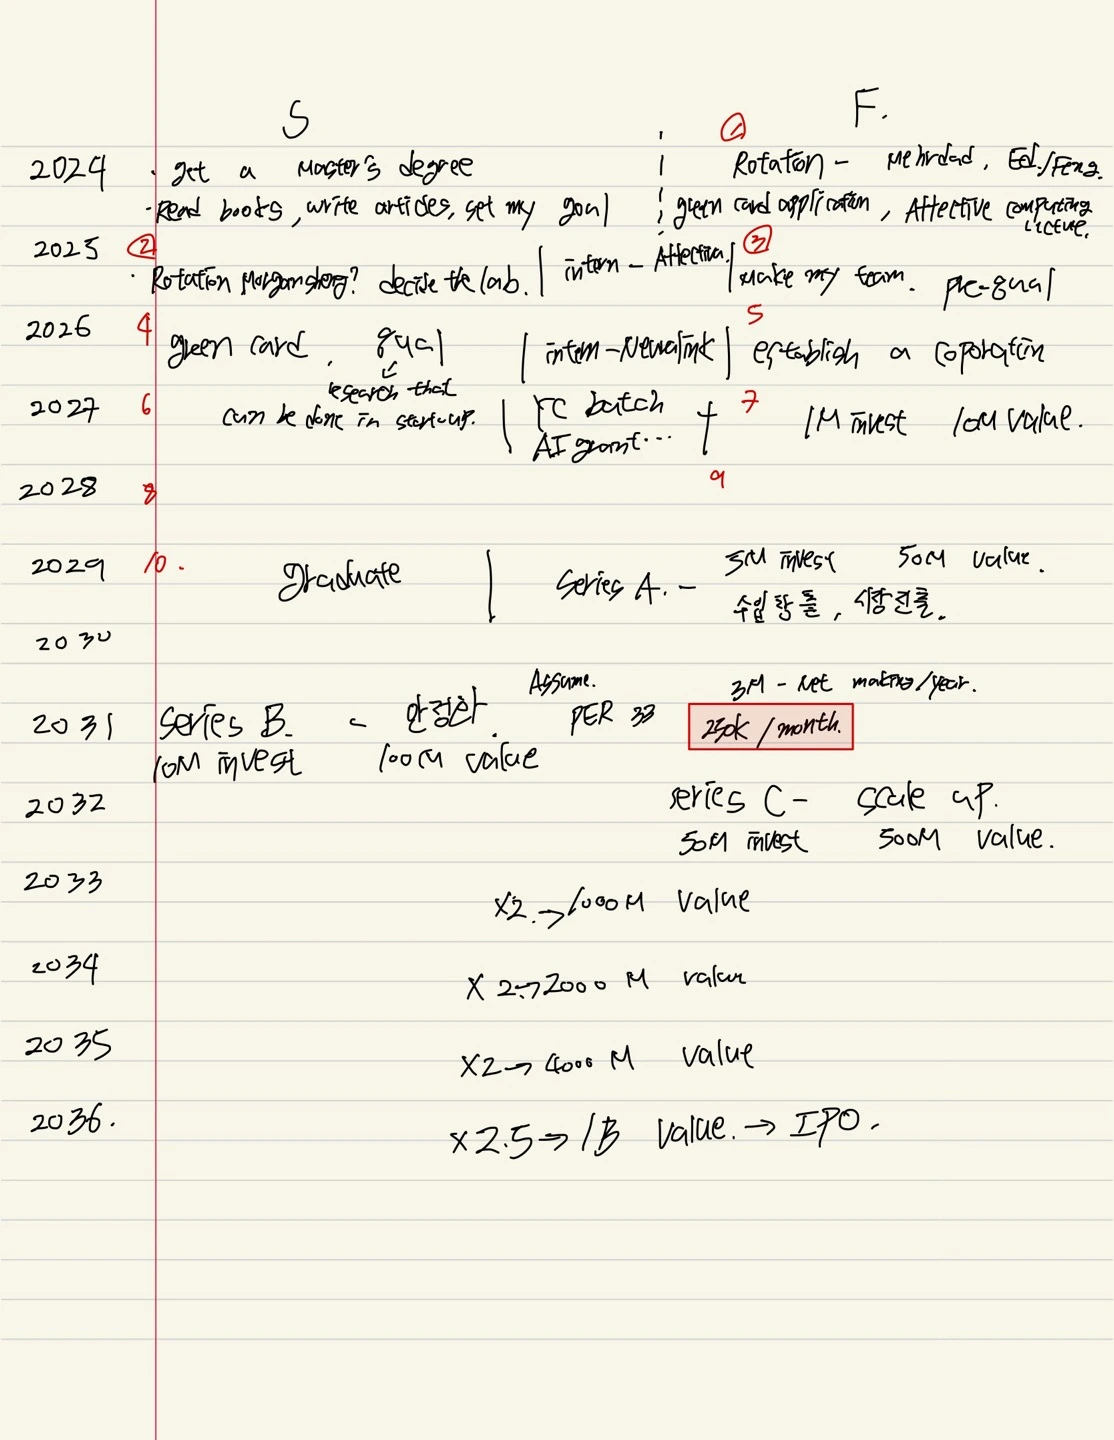 S
F.
①
2024 · get a Master's degree
Rotation - Mehrdad, Ed./Feng.
· Read books, write articles, set my goal
green card application, Affective computing
lecture.
2025 ②
③
· Rotation? decide the lab. | intern - Affectiva. | make my team. pre-qual
5
2026 4 green card, qual | intern-Neuralink | establish a coporation
research that
2027 6 can be done in start-up. | YC batch
7 1M invest 10M value.
AI grant...
9
2028 8
2029 10. graduate | Series A. - 5M invest 50M value.
수입 창출, 시장 진출.
2030
Assume. 3M - net /year.
2031 Series B. - 안정화. PER 33 250k / month.
10M invest 100M value
2032 series C - scale up.
50M invest 500M value.
2033
x2. → 1000M value
2034 x2. → 2000M value
2035 x2 → 4000M value
2036. x2.5 → 1B value. → IPO.